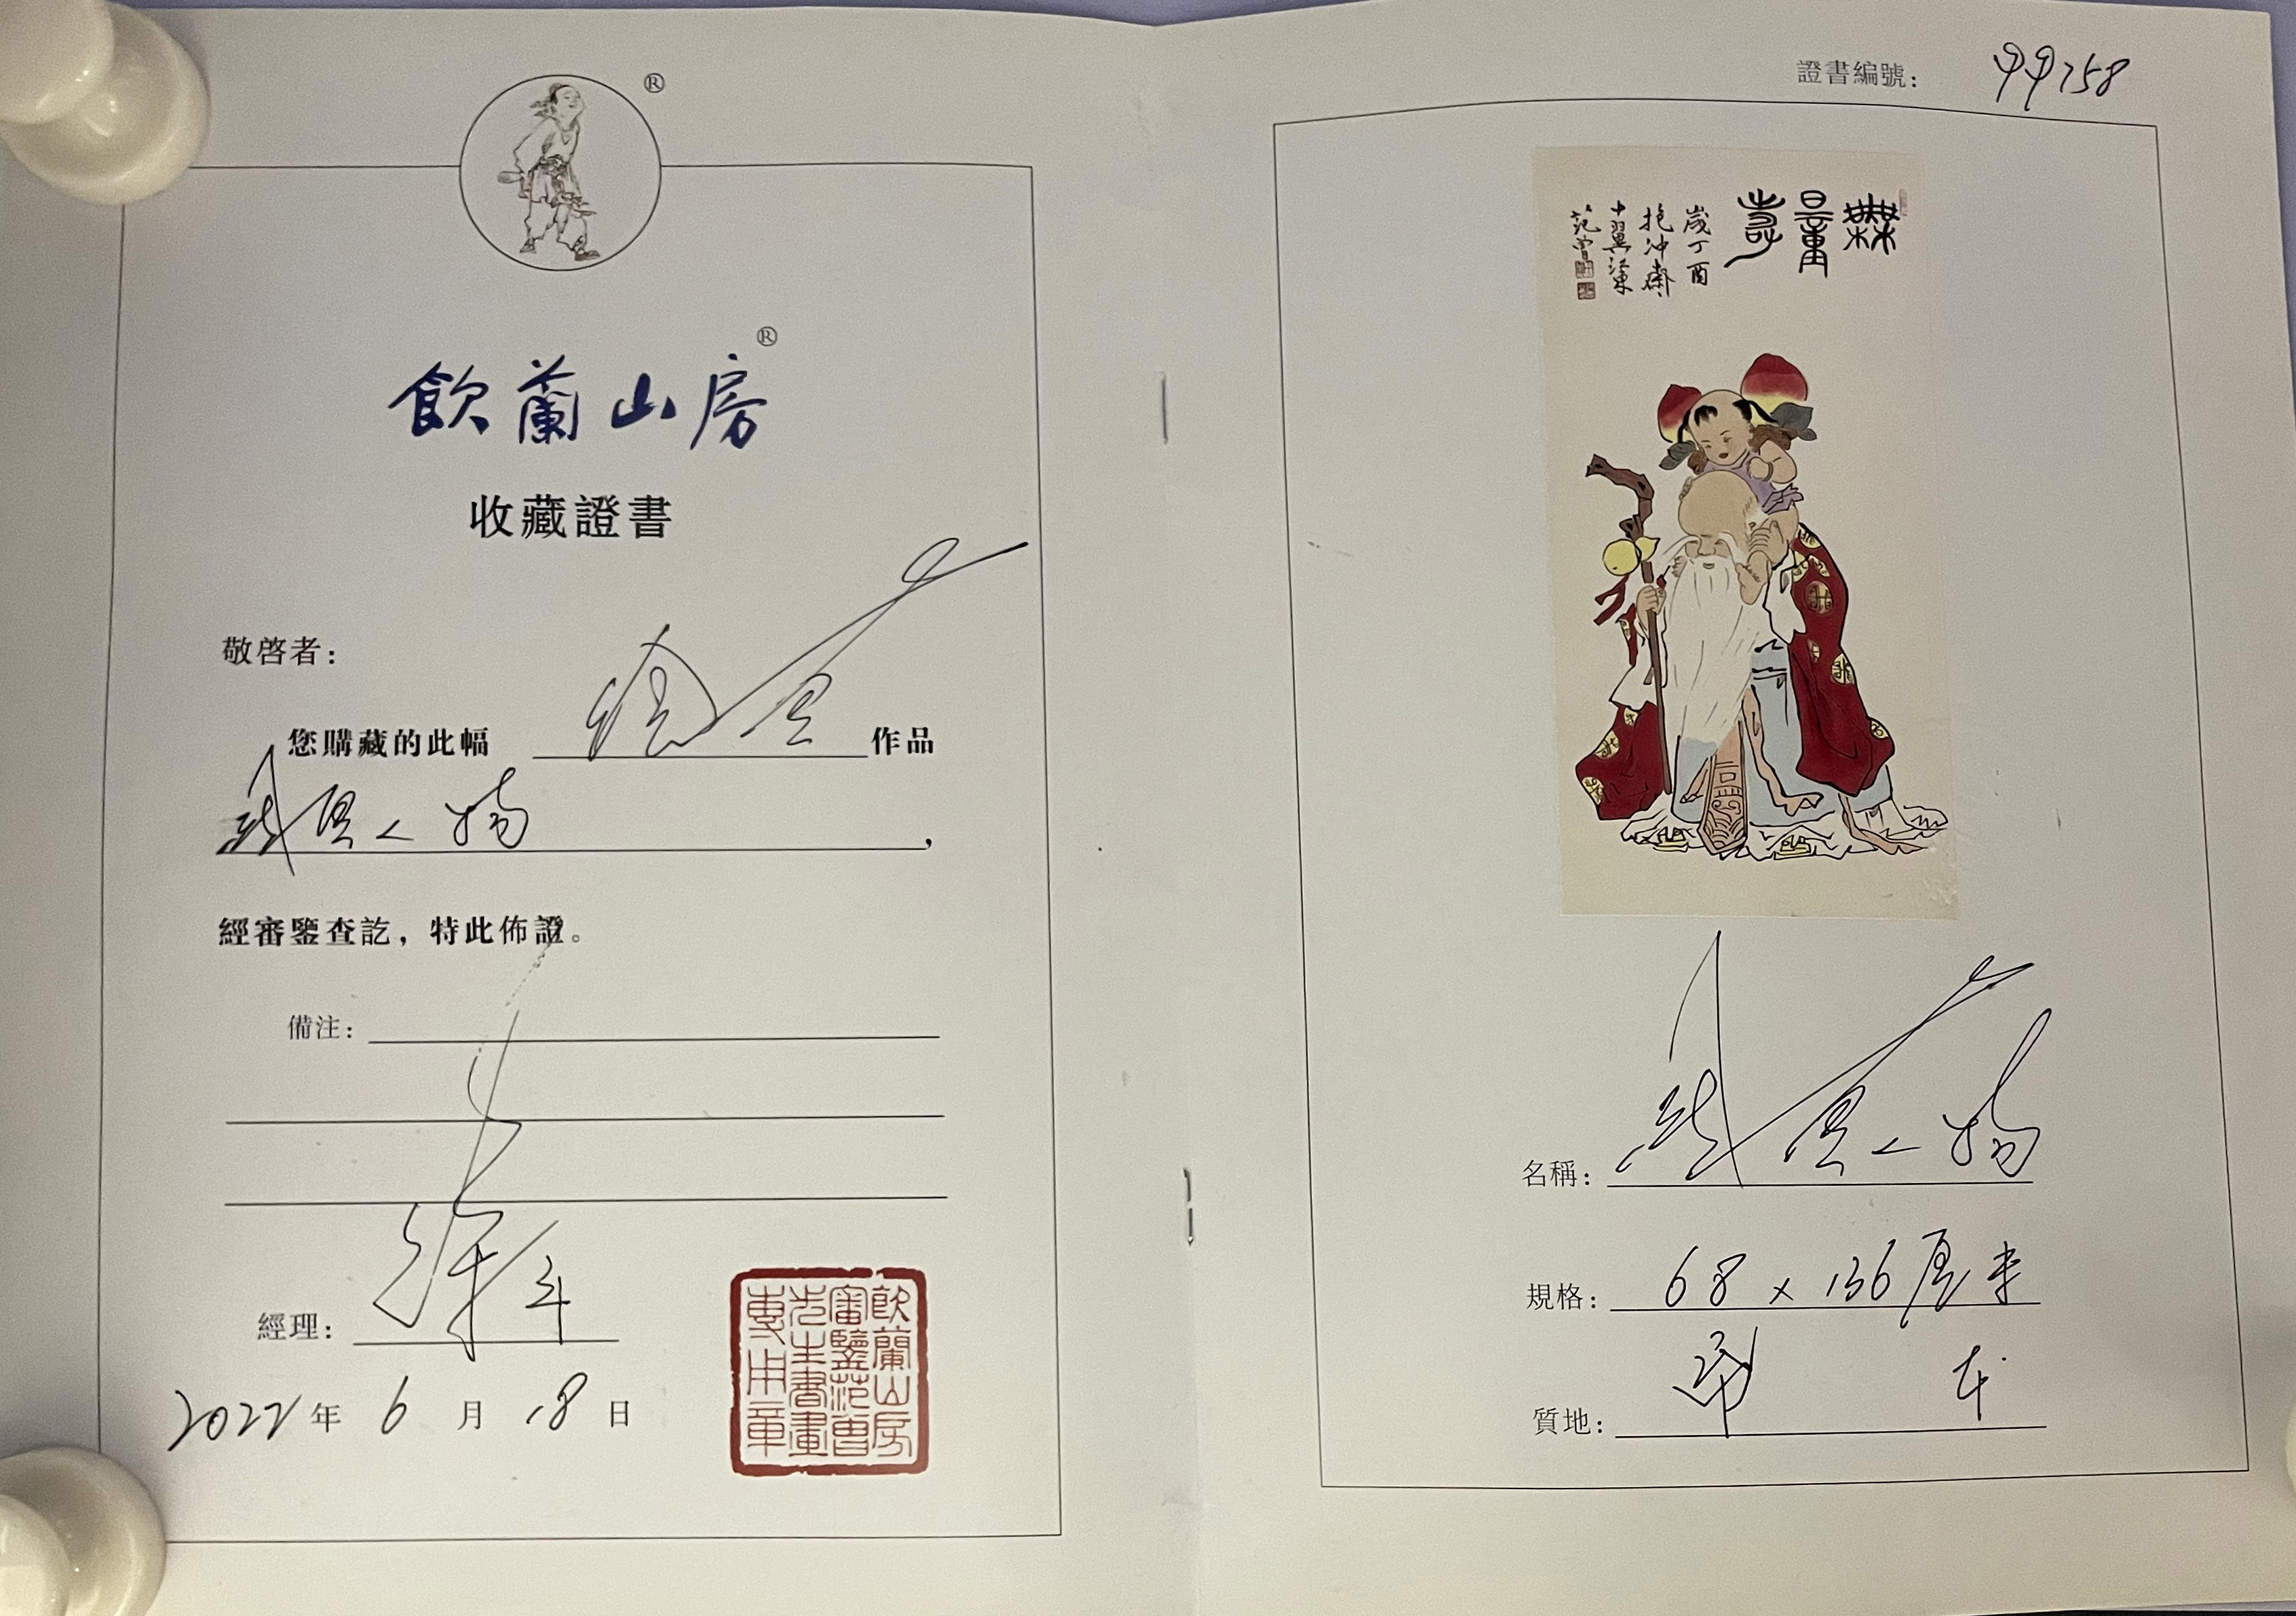 ®
飲蘭山房®
收藏證書
敬啓者：
您購藏的此幅 作品
人物，
經審鑒查訖，特此佈證。
備注：
經理：
2022年6月18日
飲蘭山房
審鑒范曾
先生書畫
專用章
證書編號：99758
無量壽
歲丁酉
抱沖齋
十翼江東
范曾
名稱： 人物
規格：68×136厘米
質地： 本